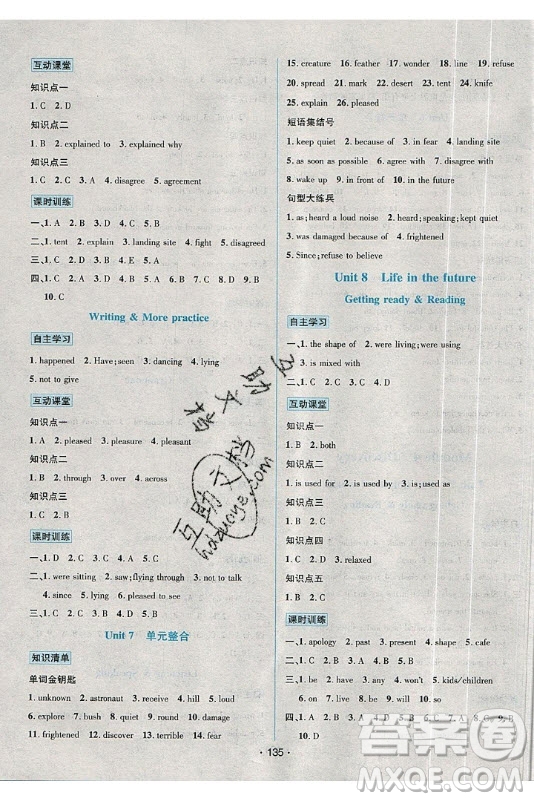 互动课堂
知识点一
1. C  2. D
知识点二
1. B  2. explained to  3. explained why
知识点三
1. C  2. C  3. A  4. disagree  5. agreement
课时训练
一、1. A  2. D  3. C  4. A  5. B
二、1. tent  2. explain  3. landing site  4. fight  5. disagreed
三、1. D  2. C  3. A  4. C  5. B
四、1. C  2. C  3. A  4. D  5. D  6. B  7. A  8. C  9. B
10. C
Writing & More practice
自主学习
1. happened  2. Have; seen  3. dancing  4. lying
5. not to give
互动课堂
知识点一
1. A  2. pleased  3. pleasure  4. pleasant
知识点二
1. B  2. through  3. over  4. across
知识点三
1. B  2. B
课时训练
一、1. D  2. C  3. B  4. C  5. A
二、1. were sitting  2. saw; flying through  3. not to talk
4. since  5. giving up  6. lying
三、1. C  2. B  3. A  4. D  5. C
Unit 7  单元整合
知识清单
单词金钥匙
1. unknown  2. astronaut  3. receive  4. hill  5. loud
6. explore  7. bush  8. quiet  9. point  10. damage
11. frightened  12. discover  13. terrible  14. fear
15. creature  16. feather  17. wonder  18. line  19. refuse
20. spread  21. mark  22. desert  23. tent  24. knife
25. explain  26. pleased
短语集结号
1. keep quiet  2. because of  3. in fear  4. landing site
5. as soon as possible  6. agree with  7. give off
8. wake up  9. in front of  10. in the future
句型大练兵
1. as; heard a loud noise  2. heard; speaking; kept quiet
3. was damaged because of  4. frightened
5. As; refuse to believe
Unit 8  Life in the future
Getting ready & Reading
自主学习
一、1. the shape of  2. were living; were using
3. is mixed with
二、1. B  2. C  3. C  4. A
互动课堂
知识点一
1. B  2. both
知识点二
1. is used for  2. C  3. is used as
知识点三
1. C  2. D
知识点四
1. C  2. A  3. D  4. relaxed
知识点五
1. B  2. D
课时训练
一、1. apology  2. past  3. among  4. shape  5. cafe
二、1. C  2. B  3. A  4. C  5. B
6. be  7. on  8. will  9. will  10. so
10. D
135
互助文档
hdzuoye.com
答案圈
MXQE.COM